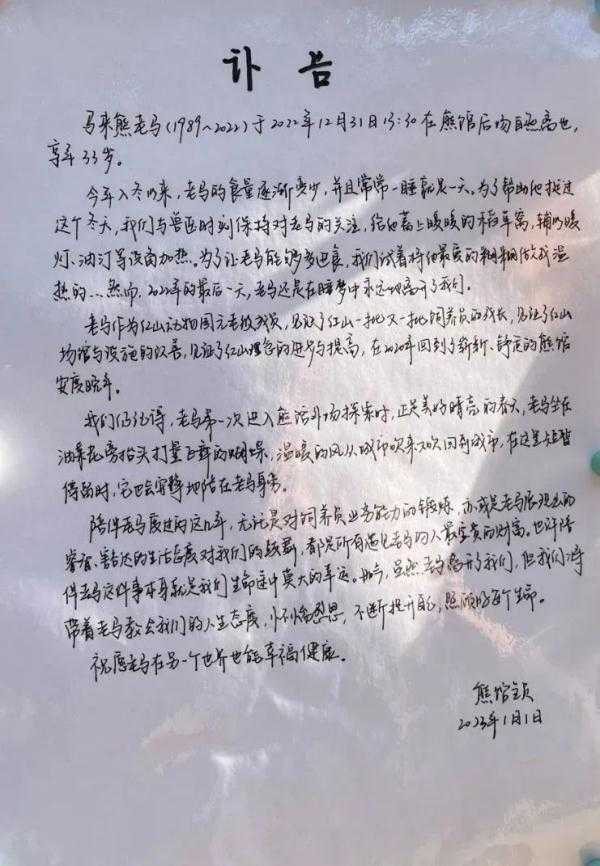 讣告
马来熊老马(1989~2022)于2022年12月31日13:30在熊馆后场自然离世,
享年33岁。
今年入冬以来,老马的食量逐渐变少,并且常常一睡就是一天。为了帮助他挺过
这个冬天,我们与兽医时刻保持对老马的关注,给他卷上暖暖的稻草窝,辅以暖
灯、油汀等设备加热。为了让老马能够多进食,我们试着将他最爱的粥粥做成温
热的…然而,2022年的最后一天,老马还是在睡梦中永远地离开了我们。
老马作为红山动物园元老级成员,见证了红山一批又一批饲养员的成长,见证了红山
场馆与设施的改善,见证了红山理念的进步与提高,在2020年回到了崭新、舒适的熊馆
安度晚年。
我们仍记得,老马第一次进入熊馆外场探索时,正是美好晴亮的春天,老马坐在
油菜花旁抬头打量飞舞的蝴蝶,温暖的风从城市吹来又吹回到城市,在这里短暂
停留时,它也会安静地陪在老马身旁。
陪伴老马度过的这几年,无论是对饲养员业务能力的锻炼,亦或是老马展现出的
睿智、豁达的生活态度对我们的鼓舞,都是所有遇见老马的人最宝贵的财富。也许陪
伴老马这件事本身就是我们生命途中莫大的幸运。如今,虽然老马离开了我们,但我们将
带着老马教会我们的人生态度,怀恪恩思,不断提升自己,照顾好每个生命。
祝愿老马在另一个世界也能幸福健康。
熊馆全员
2023年1月1日